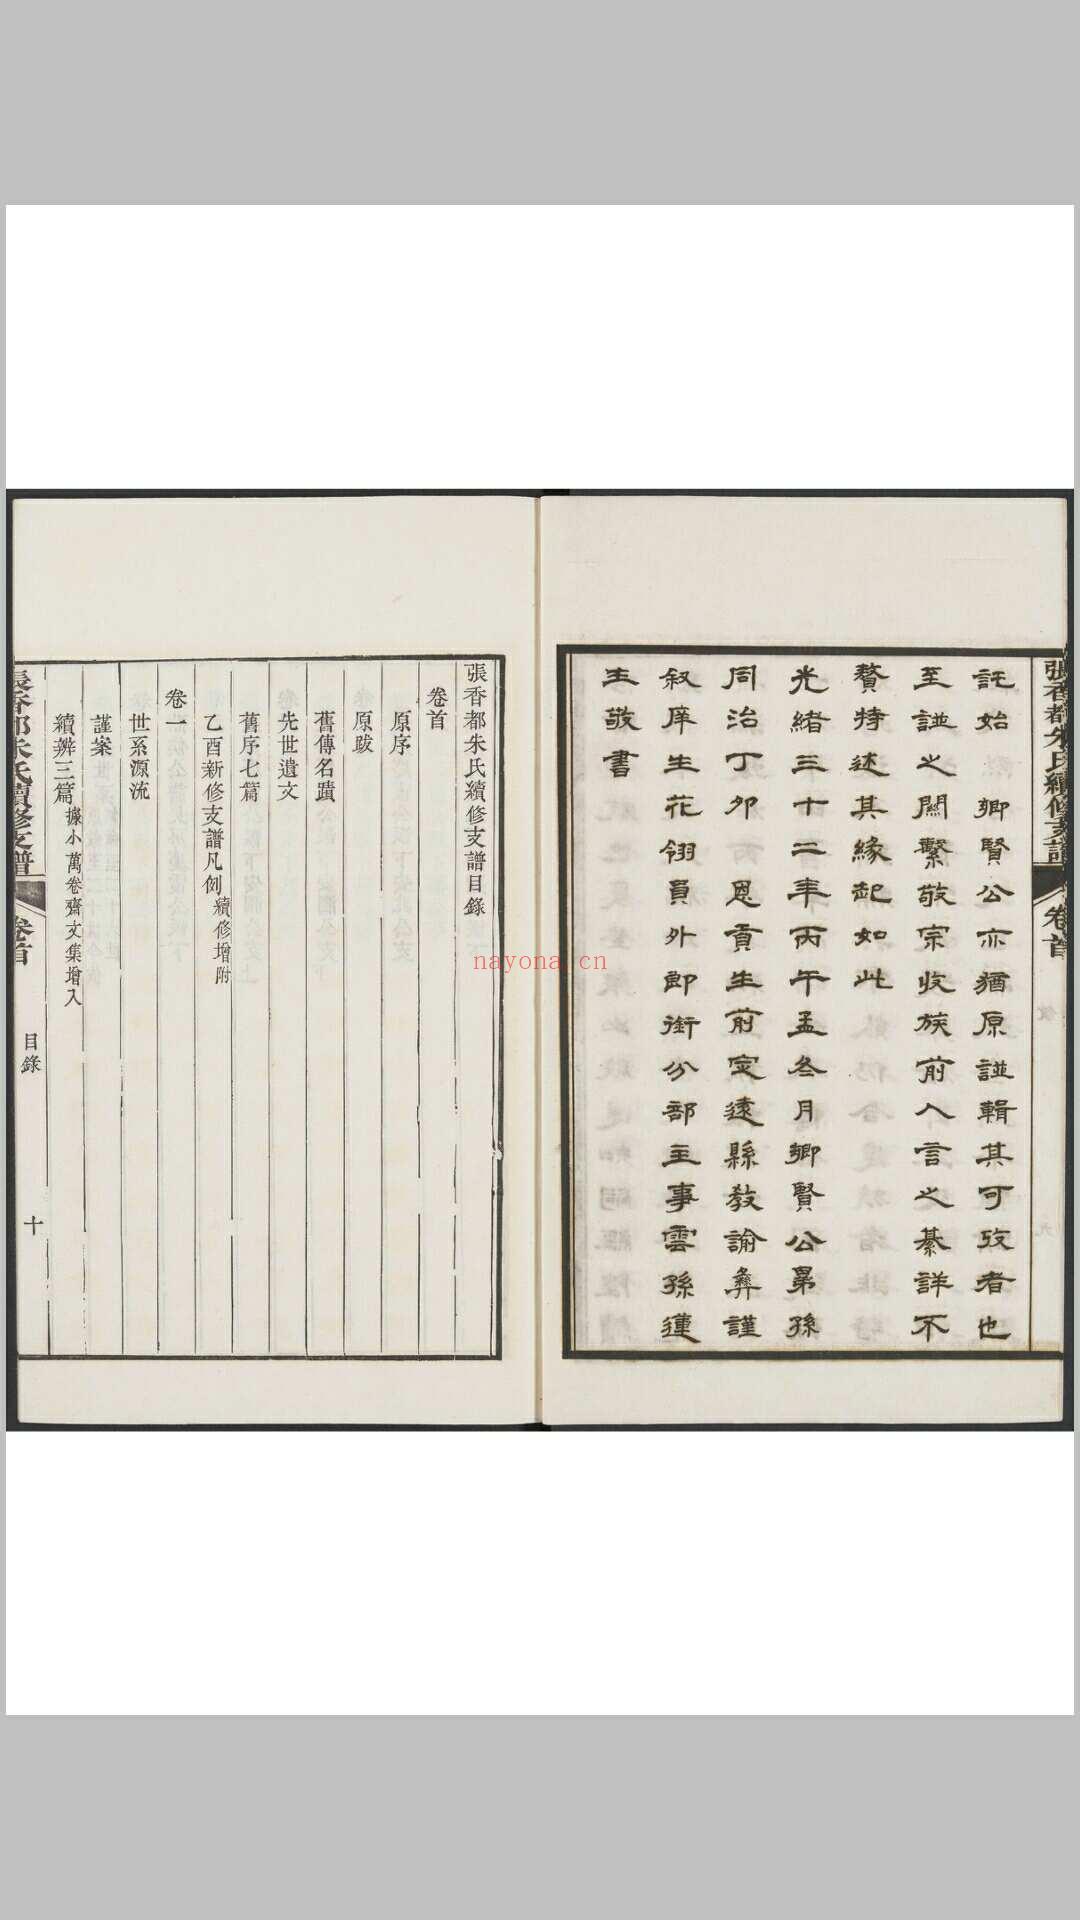 張香都朱氏續修支譜
卷首
託始　鄉賢公亦猶原譜輯其可攷者也
至譜之關繫敬宗收族前人言之綦詳不
贅特述其緣起如此
光緒三十二年丙午孟冬月鄉賢公晜孫
同治丁卯　恩貢生前定遠縣教諭彝謹
叙庠生花翎員外郎銜分部主事雲孫蓮
生敬書
張香都朱氏續修支譜目錄
卷首
原序
原跋
舊傳名蹟
先世遺文
舊序七篇
乙酉新修支譜凡例續修增附
卷一
世系源流
謹案
續辨三篇據小萬卷齋文集增入
張香都朱氏續修支譜
卷首
目錄
十
nayona.cn